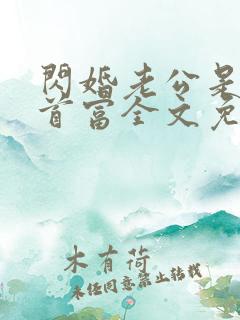 閃婚老公是
首富全文免
木有荷
未經同意禁止轉載